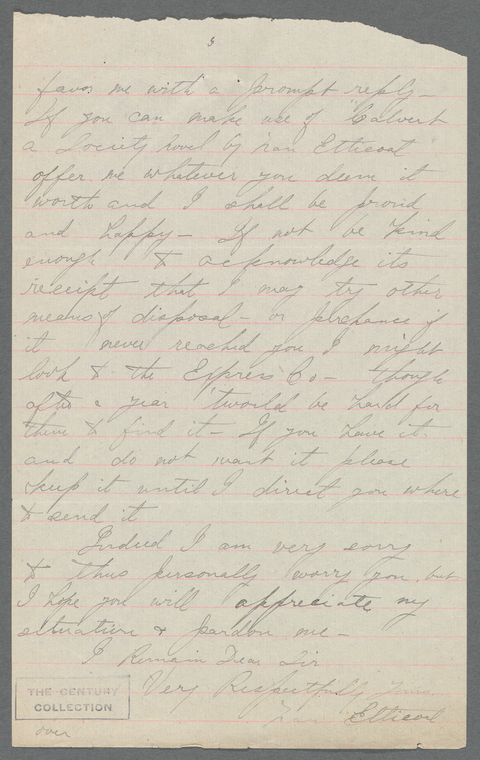 3
favor me with a prompt reply -
If you can make use of "Calvert
a Society Novel by Nan Etticoat"
offer me whatever you deem it
worth and I shall be proud
and happy - If not be kind
enough to acknowledge its
receipt that I may try other
means of disposal - or perchance if
it never reached you I might
look to the Express Co - though
after a year 'twould be hard for
them to find it - If you have it
and do not want it please
keep it until I direct you where
to send it
Indeed I am very sorry
to thus personally worry you, but
I hope you will appreciate my
situation & pardon me -
I Remain Dear Sir
Very Respectfully Yours.
Nan Etticoat
THE CENTURY
COLLECTION
over